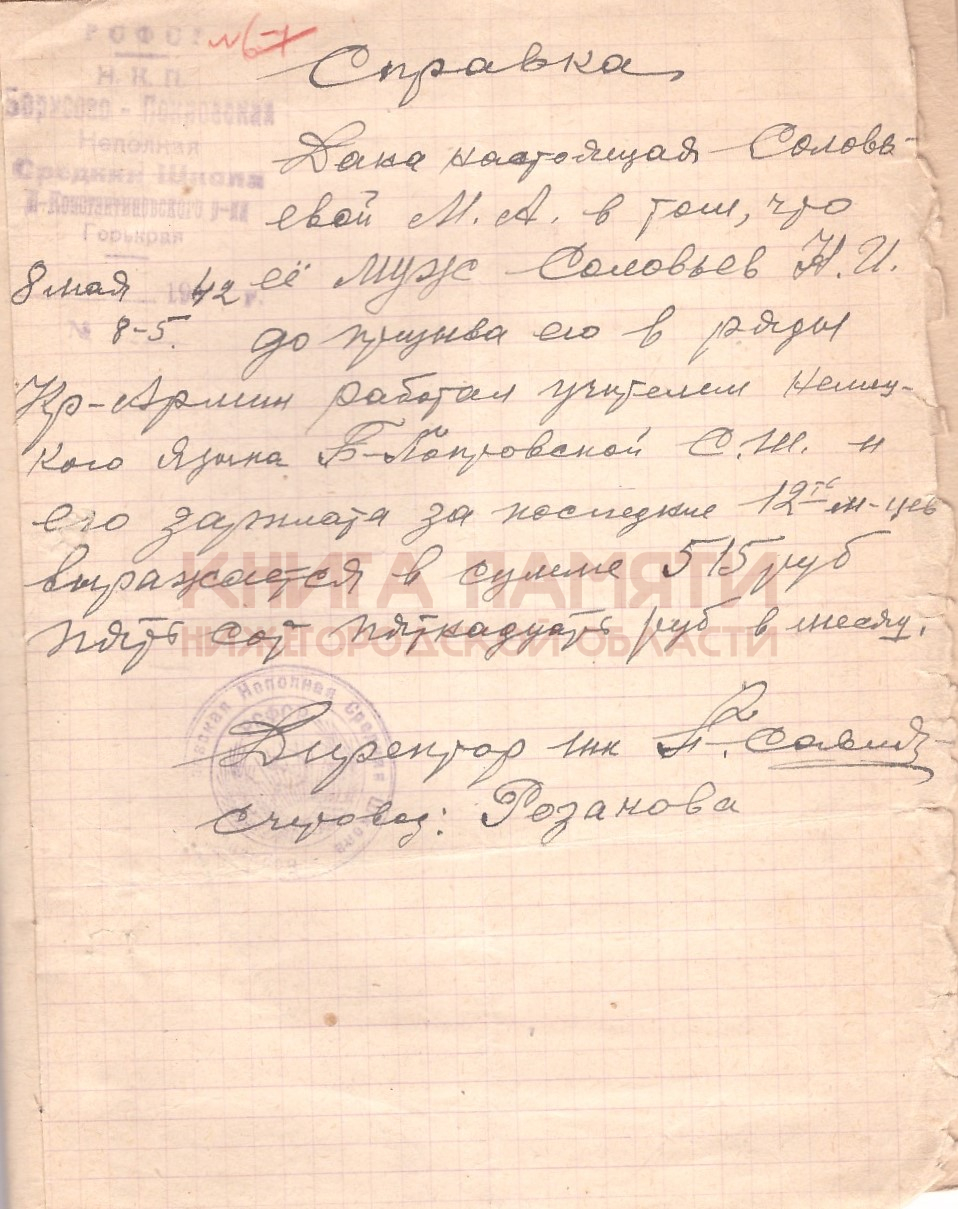 РСФСР
№ 67
Н. К. П.
Борисово - Покровская
Неполная
Средняя Школа
Д-Константиновского р-на
Горькрая
8 мая 1942 г.
№ 8-5.
Справка
Дана настоящая Соловь-
евой М. А. в том, что
её муж Соловьев Н. И.
до призыва его в ряды
Кр-Армии работал учителем немец-
кого языка Б-Покровской С.Ш. и
его зарплата за последние 12ть м-цев
выражается в сумме 515 руб
пять сот пятнадцать руб в месяц.
КНИГА ПАМЯТИ
НИЖЕГОРОДСКОЙ ОБЛАСТИ
Директор шк
счетовод: Розанова
Неполная Средняя Школа
РСФСР